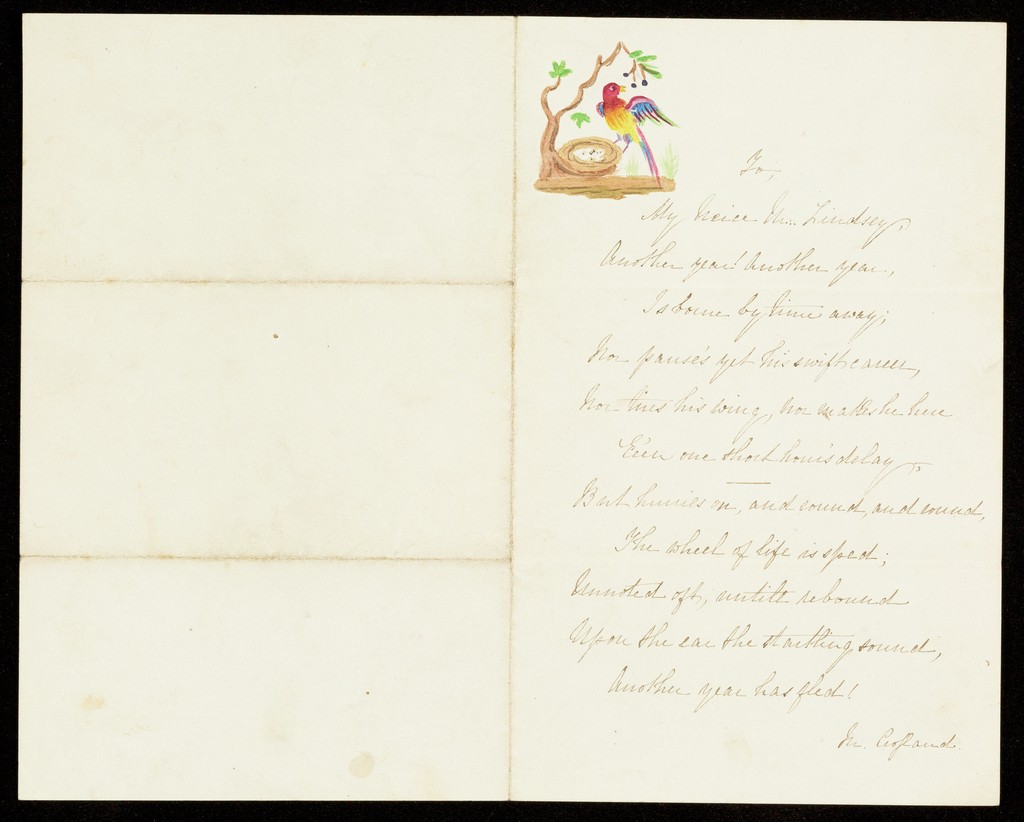 To,
My Neice M... Lindsey,
Another year! Another year,
Is borne by time away;
Nor pause's yet his swift career,
Nor tires his wing, nor makes he here
E'en one short hour's delay,
But hurries on, and round, and round,
The wheel of life is sped;
Unnoted oft, untill rebound
Upon the ear the starttling sound,
Another year has fled!
M.